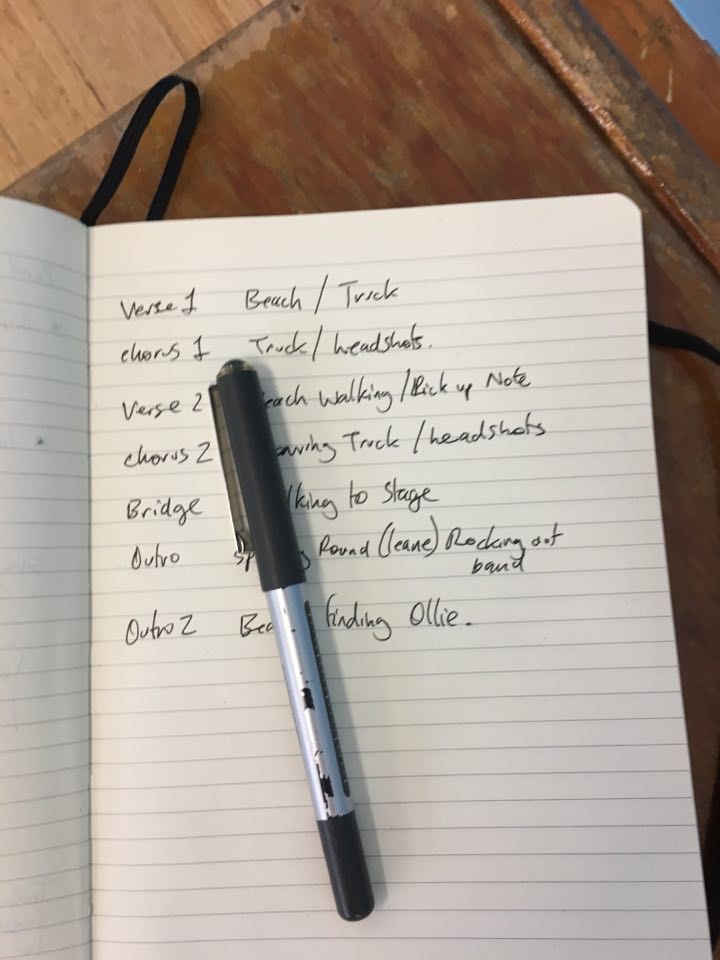 Verse 1 Beach / Truck
chorus 1 Truck / headshots.
Verse 2 Walking / Pick up Note
chorus 2 Truck / headshots
Bridge to Stage
Outro Round (leane) Rocking out
band
Outro 2 finding Ollie.